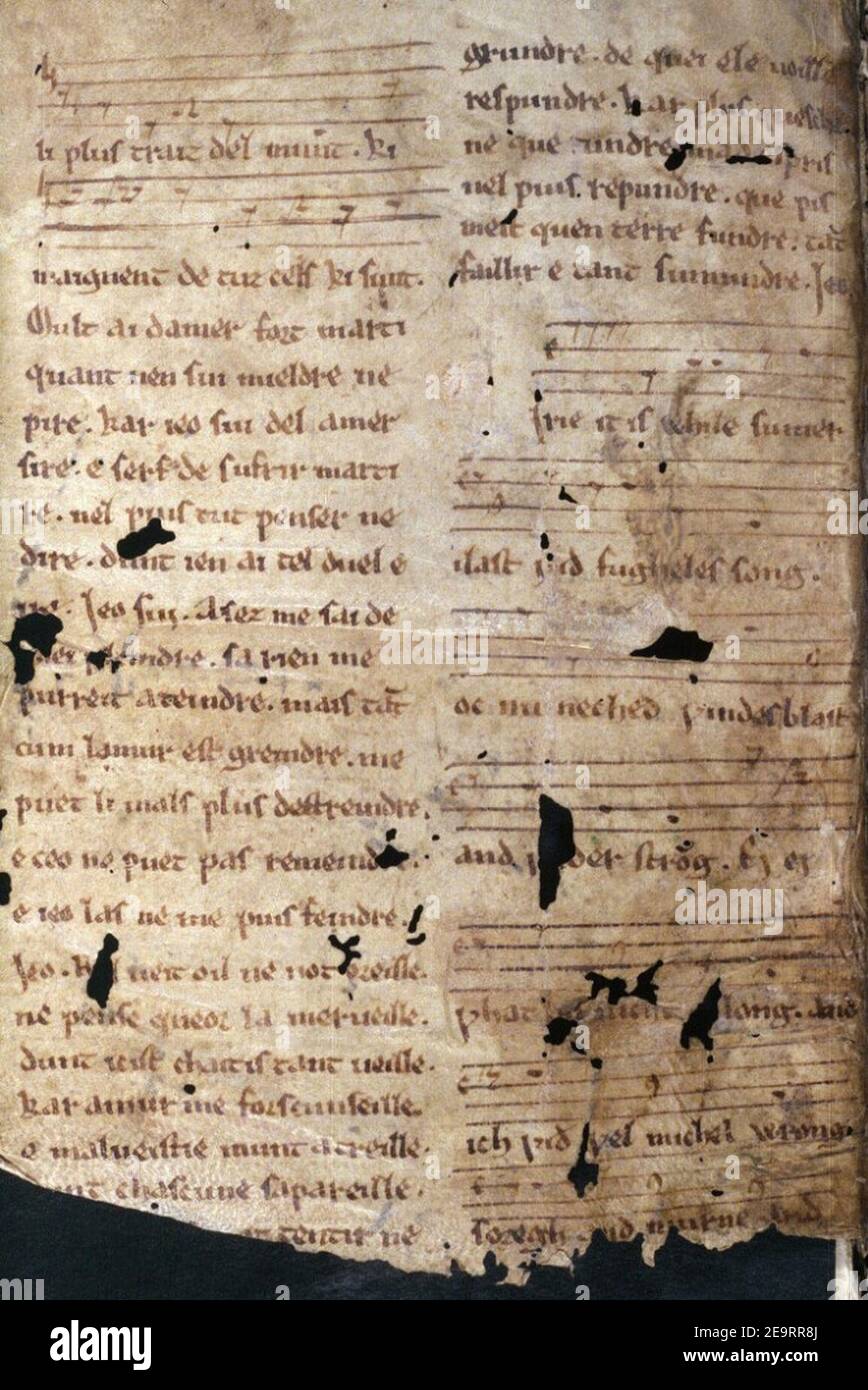 li plus trait del munt. ki
maiguent de tuz cels ki sunt.
Mult ai damer fort marti
quant nen sui mieldre ne
pire. kar ieo sui del amer
sire. e serf de sufrir marti
re. nel puis tut penser ne
dire. dunt ien ai tel duel e
Jeo sui. Asez me sai de
sa rien me
purreit ateindre. mais tāt
cum lamur est greindre. me
puet li mals plus destreindre.
e ceo ne puet pas
e ieo las ne me puis feindre.
Jeo. veit oil ne not oreille.
ne pense queor la merveille.
dunt icist chaitis tant veille.
kar amur me forscunseille.
e malveistie munt atreille.
chascune sapareille.
tentir ne
grundre. de quei ele voille
respundre. kar plus
ne que
nel puis repundre. que pis
meit quen terre fundre. tāt
faillir e tant sumundre. Jeo
irie it is while sumer
ilast ƿid fugheles song.
oc nu neched ƿindes blast
and ƿeder strōg. Ej ej
þhat nicht long. and
ich ƿid ƿel michel wrong.
soregh and murne and
alamy
Image ID: 2E9RR8J
www.alamy.com